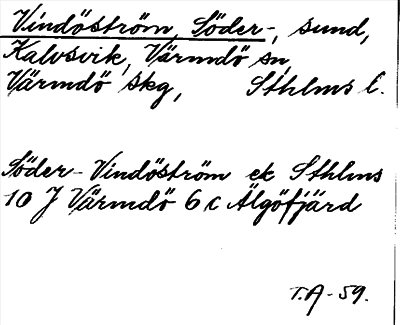 Vindöström, Söder-, sund,
Kalvsvik, Värmdö sn,
Värmdö skg, Sthlms l.
Söder-Vindöström ek Sthlms
10 J Värmdö 6 c Älgöfjärd
T.A-59.